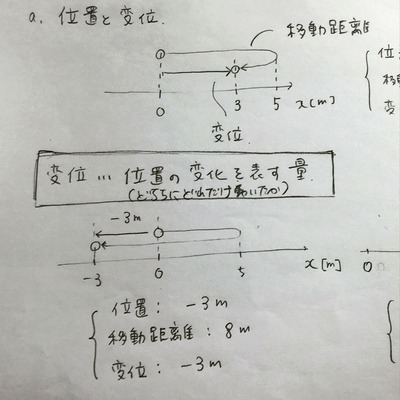 a. 位置と変位.
移動距離
0 3 5 x(m)
変位
変位… 位置の変化を表す量.
(どちらにどれだけ動いたか)
-3m
-3 0 5 x[m]
0
位置: -3m
移動距離: 8m
変位: -3m
位
移
変